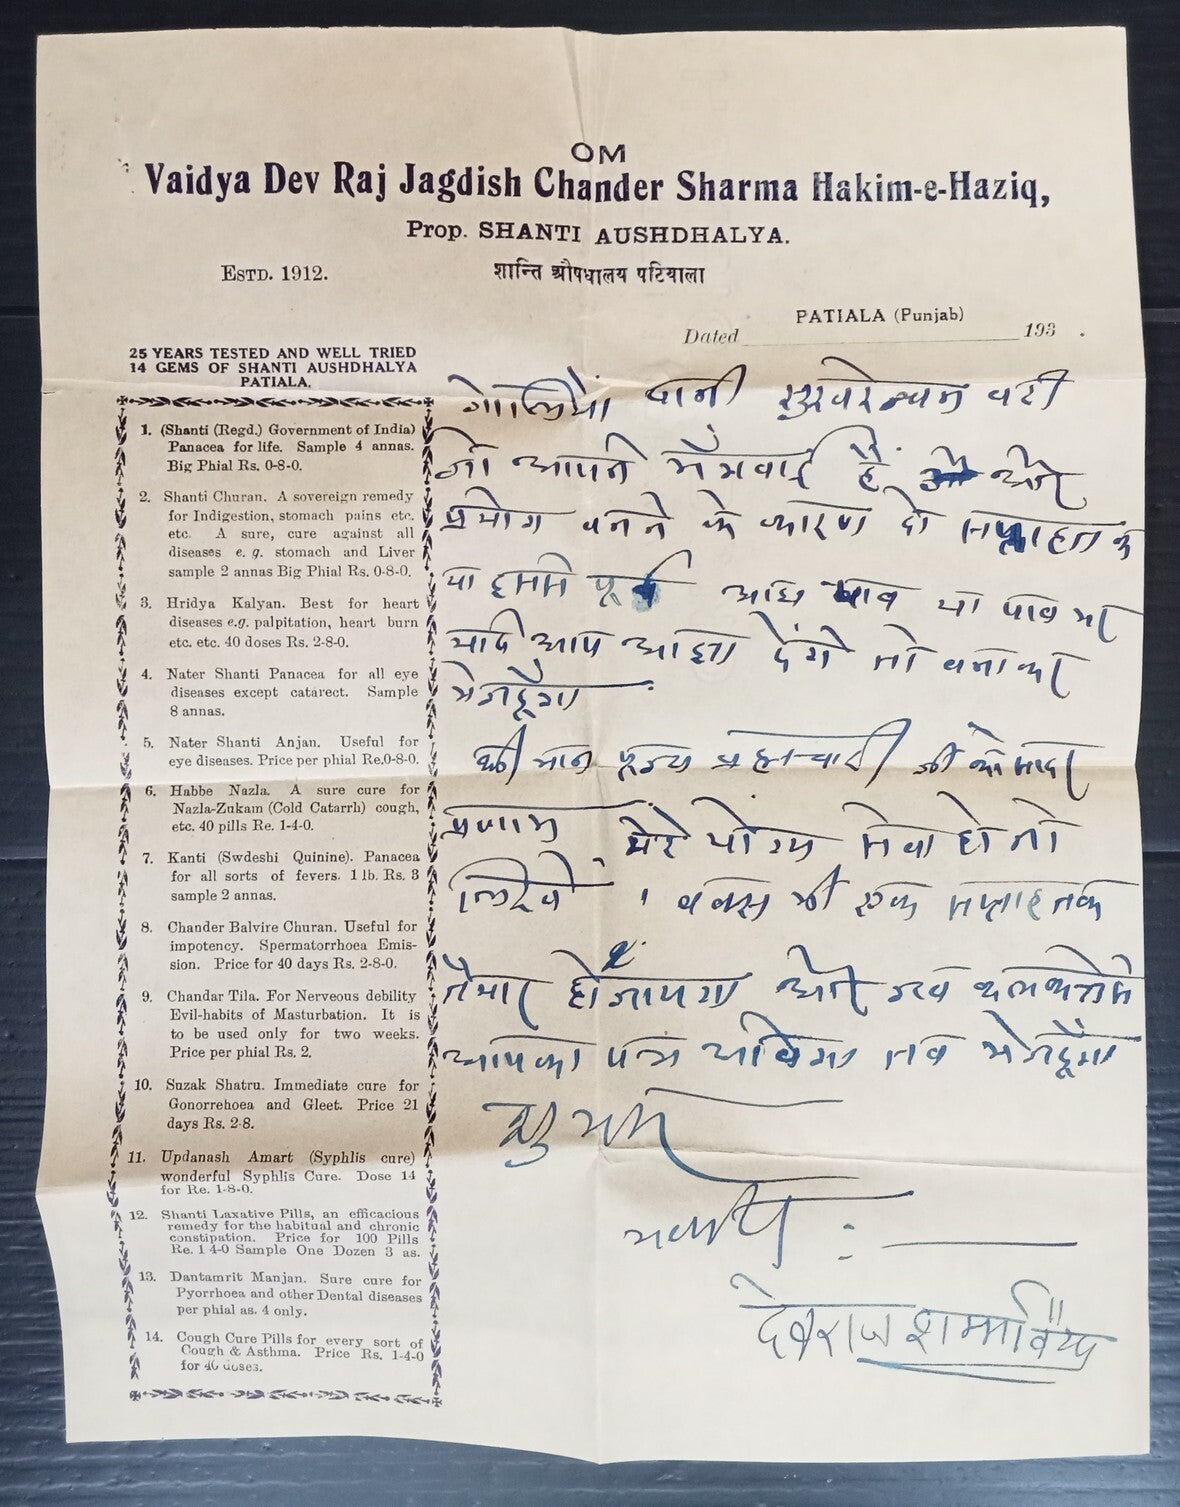 OM
Vaidya Dev Raj Jagdish Chander Sharma Hakim-e-Haziq,
Prop. SHANTI AUSHDHALYA.
ESTD. 1912.
शान्ति औषधालय पटियाला
PATIALA (Punjab)
Dated 193 .
25 YEARS TESTED AND WELL TRIED
14 GEMS OF SHANTI AUSHDHALYA
PATIALA.
1. (Shanti (Regd.) Government of India)
Panacea for life. Sample 4 annas.
Big Phial Rs. 0-8-0.
2. Shanti Churan. A sovereign remedy
for Indigestion, stomach pains etc.
etc. A sure, cure against all
diseases e. g. stomach and Liver
sample 2 annas Big Phial Rs. 0-8-0.
3. Hridya Kalyan. Best for heart
diseases e.g. palpitation, heart burn
etc. etc. 40 doses Rs. 2-8-0.
4. Nater Shanti Panacea for all eye
diseases except catarect. Sample
8 annas.
5. Nater Shanti Anjan. Useful for
eye diseases. Price per phial Re.0-8-0.
6. Habbe Nazla. A sure cure for
Nazla-Zukam (Cold Catarrh) cough,
etc. 40 pills Re. 1-4-0.
7. Kanti (Swdeshi Quinine). Panacea
for all sorts of fevers. 1 lb. Rs. 3
sample 2 annas.
8. Chander Balvire Churan. Useful for
impotency. Spermatorrhoea Emis-
sion. Price for 40 days Rs. 2-8-0.
9. Chandar Tila. For Nerveous debility
Evil-habits of Masturbation. It is
to be used only for two weeks.
Price per phial Rs. 2.
10. Suzak Shatru. Immediate cure for
Gonorrehoea and Gleet. Price 21
days Rs. 2-8.
11. Updanash Amart (Syphlis cure)
wonderful Syphlis Cure. Dose 14
for Re. 1-8-0.
12. Shanti Laxative Pills, an efficacious
remedy for the habitual and chronic
constipation. Price for 100 Pills
Re. 1 4-0 Sample One Dozen 3 as.
13. Dantamrit Manjan. Sure cure for
Pyorrhoea and other Dental diseases
per phial as. 4 only.
14. Cough Cure Pills for every sort of
Cough & Asthma. Price Rs. 1-4-0
for 40 doses.
गोलियां यानी वटी
जो आपने मंगवाई हैं और
प्रयोग बनने के कारण दो सप्ताह तक
या इससे पूर्व आध पाव या पाव भर
यदि आप आज्ञा देंगे तो बनाकर
भेजदूँगा
श्री मान पूज्य ब्रह्मचारी जी को सादर
प्रणाम मेरे योग्य सेवा हो तो
लिखें । बक्स भी एक सप्ताह तक
तैयार हो जाएगा और जब कलकत्ते से
आपका पत्र आवेगा तब भेजदूँगा
भवदीय :
देवराज शर्मा वैद्य